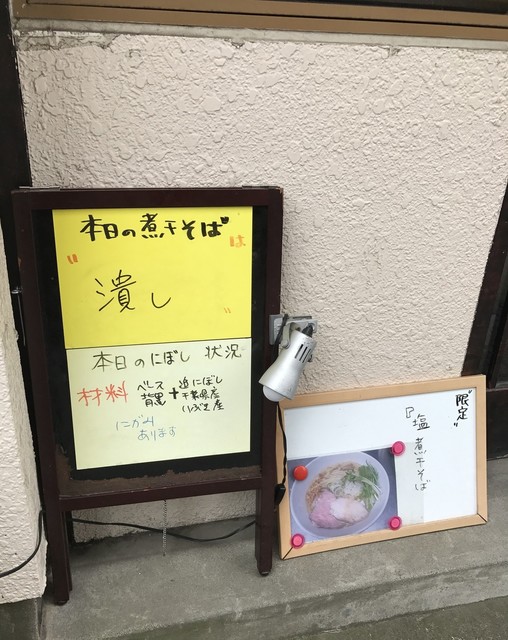 本日の煮干そば
は
"潰し"
本日のにぼし状況
材料
ベース
背黒
+
追にぼし
千葉県産
いぶき産
にがみ
あります
"限定"
『塩煮干そば